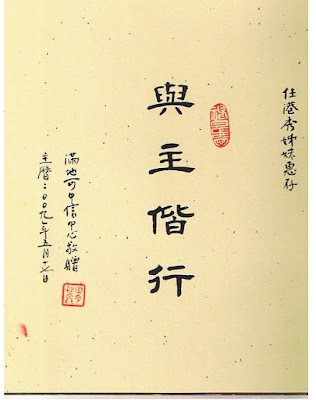 任港秀姊妹惠存
與主偕行
滿地可中信敬贈
主曆二〇〇九年五月十七日